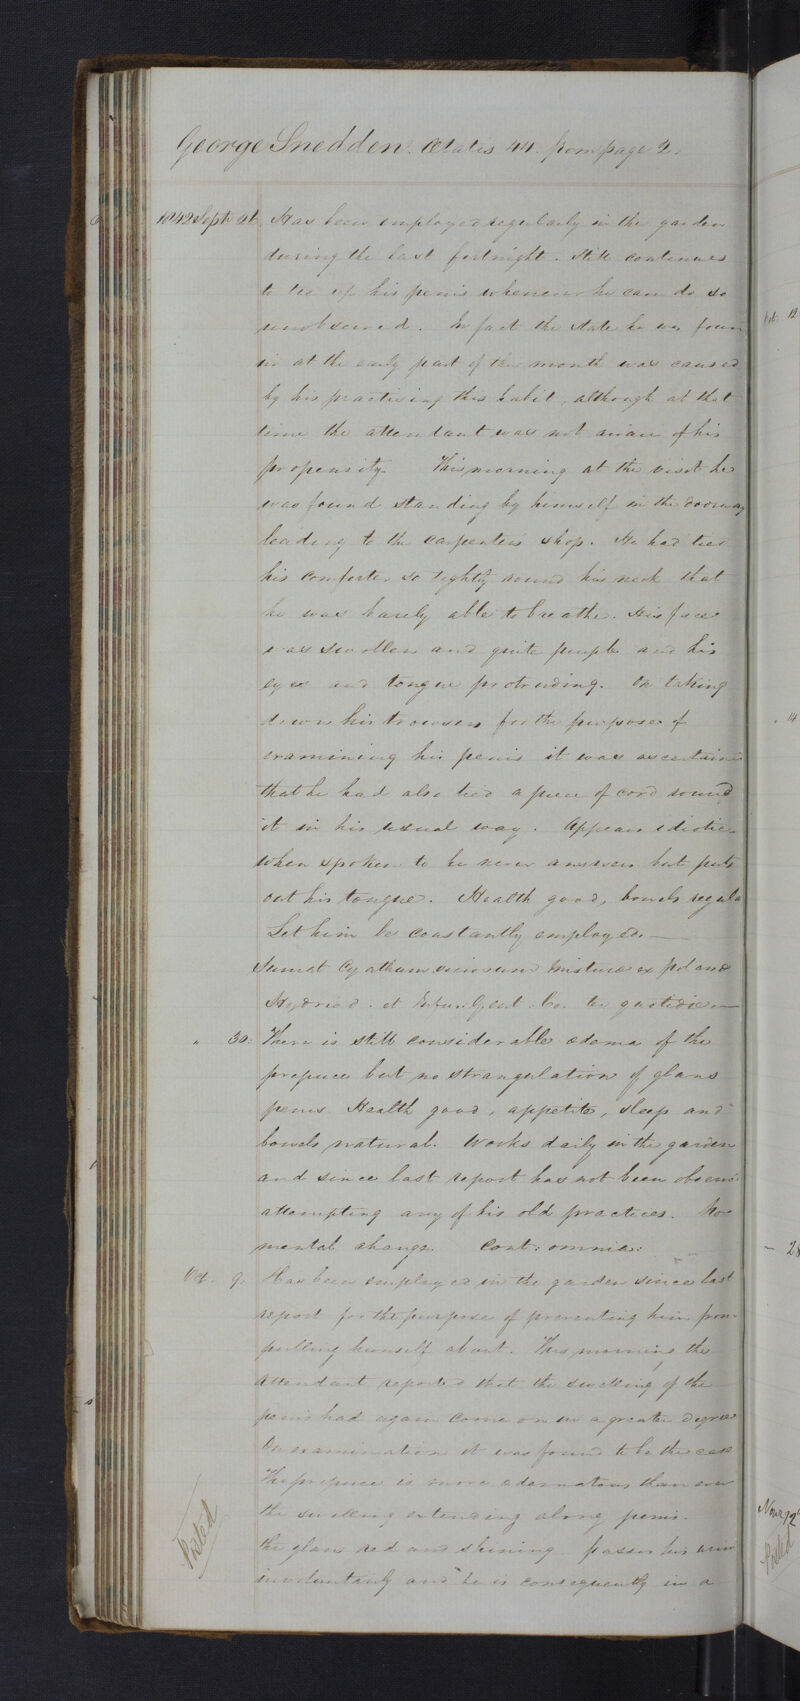 George Snedden. Ætatis 44. from page 2.
1842 Sept. 21. Has been employed regularly in the garden
during the last fortnight. Still continues
to tie up his penis whenever he can do so
unobserved. In fact the state he was foun
in at the early part of the month was caused
by his practising this habit, although at that
time the attendant was not aware of his
propensity. This morning at the visit he
was found standing by himself in the doorway
leading to the carpenters shop. He had tied
his comforter so tightly round his neck that
he was barely able to breathe. His face
was swollen and quite purple and his
eyes and tongue protruding. On taking
down his trowsers for the purpose of
examining his penis it was ascertained
that he had also tied a piece of cord round
it in his usual way. Appears idiotic
when spoken to he never answers but puts
out his tongue. Health good, bowels regula
Let him be constantly employed.—
Sumat Cyathum vinosum Misturæ
et Infus. Gent. Co. ter quotidie—
" 30. There is still considerable œdema of the
prepuce but no strangulation of glans
penis. Health good, appetite, sleep and
bowels natural. Works daily in the garden
and since last report has not been observ
attempting any of his old practices. No
mental change. Cont: omnia:
Oct. 9. Has been employed in the garden since last
report for the purpose of preventing him from
pulling himself about. This morning the
attendant reported that the swelling of the
penis had again come on in a greater degree
On examination it was found to be the case
The prepuce is more œdematous than ever
the swelling extending along penis.
the glans red and shining. passes his urine
involuntarily and he is consequently in a
Posted
Oct. 12
" 14
28
Nov. 12
Posted